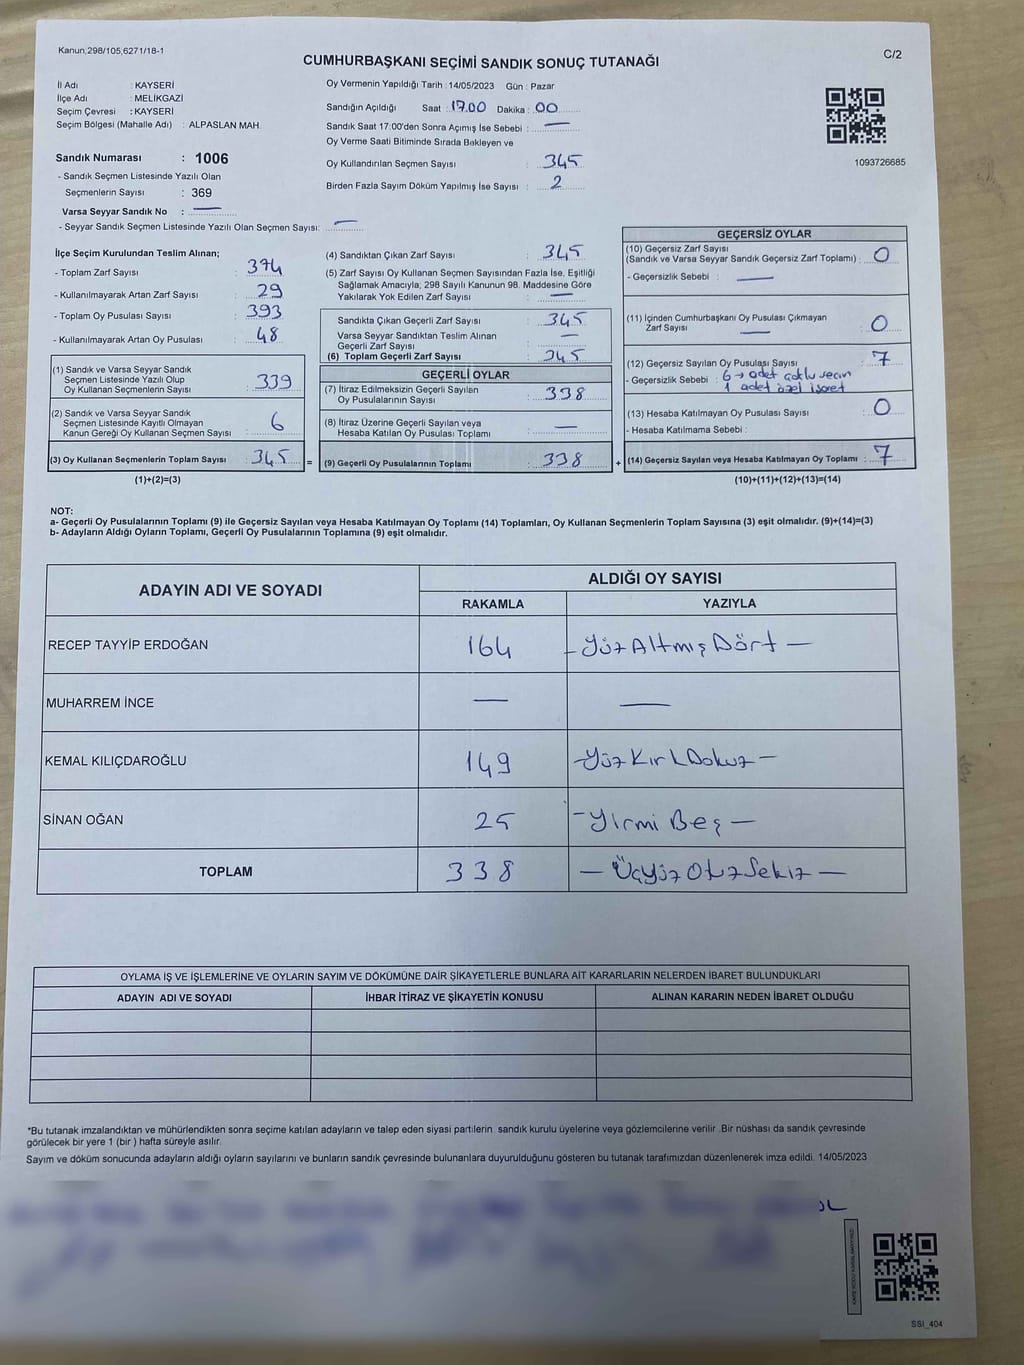 Kanun,298/105,6271/18-1
CUMHURBAŞKANI SEÇİMİ SANDIK SONUÇ TUTANAĞI
C/2
İl Adı : KAYSERİ
İlçe Adı : MELİKGAZİ
Seçim Çevresi : KAYSERİ
Seçim Bölgesi (Mahalle Adı) : ALPASLAN MAH.
Sandık Numarası : 1006
- Sandık Seçmen Listesinde Yazılı Olan
Seçmenlerin Sayısı : 369
Varsa Seyyar Sandık No : —
- Seyyar Sandık Seçmen Listesinde Yazılı Olan Seçmen Sayısı: —
Oy Vermenin Yapıldığı Tarih : 14/05/2023 Gün : Pazar
Sandığın Açıldığı Saat : 17.00 Dakika : 00
Sandık Saat 17:00'den Sonra Açımış İse Sebebi : —
Oy Verme Saati Bitiminde Sırada Bekleyen ve
Oy Kullandırılan Seçmen Sayısı : 345
Birden Fazla Sayım Döküm Yapılmış İse Sayısı : 2
1093726685
İlçe Seçim Kurulundan Teslim Alınan;
- Toplam Zarf Sayısı : 374
- Kullanılmayarak Artan Zarf Sayısı : 29
- Toplam Oy Pusulası Sayısı : 393
- Kullanılmayarak Artan Oy Pusulası : 48
(1) Sandık ve Varsa Seyyar Sandık
Seçmen Listesinde Yazılı Olup
Oy Kullanan Seçmenlerin Sayısı : 339
(2) Sandık ve Varsa Seyyar Sandık
Seçmen Listesinde Kayıtlı Olmayan
Kanun Gereği Oy Kullanan Seçmen Sayısı : 6
(3) Oy Kullanan Seçmenlerin Toplam Sayısı : 345 =
(1)+(2)=(3)
(4) Sandıktan Çıkan Zarf Sayısı : 345
(5) Zarf Sayısı Oy Kullanan Seçmen Sayısından Fazla İse, Eşitliği
Sağlamak Amacıyla; 298 Sayılı Kanunun 98. Maddesine Göre
Yakılarak Yok Edilen Zarf Sayısı : —
Sandıkta Çıkan Geçerli Zarf Sayısı : 345
Varsa Seyyar Sandıktan Teslim Alınan
Geçerli Zarf Sayısı : —
(6) Toplam Geçerli Zarf Sayısı : 345
GEÇERLİ OYLAR
(7) İtiraz Edilmeksizin Geçerli Sayılan
Oy Pusulalarının Sayısı : 338
(8) İtiraz Üzerine Geçerli Sayılan veya
Hesaba Katılan Oy Pusulası Toplamı : —
(9) Geçerli Oy Pusulalarının Toplamı : 338 +
GEÇERSİZ OYLAR
(10) Geçersiz Zarf Sayısı
(Sandık ve Varsa Seyyar Sandık Geçersiz Zarf Toplamı) : 0
- Geçersizlik Sebebi : —
(11) İçinden Cumhurbaşkanı Oy Pusulası Çıkmayan
Zarf Sayısı — : 0
(12) Geçersiz Sayılan Oy Pusulası Sayısı : 7
- Geçersizlik Sebebi : 6 → adet çoklu seçim
1 adet özel işaret
(13) Hesaba Katılmayan Oy Pusulası Sayısı : 0
- Hesaba Katılmama Sebebi :
(14) Geçersiz Sayılan veya Hesaba Katılmayan Oy Toplamı : 7
(10)+(11)+(12)+(13)=(14)
NOT:
a- Geçerli Oy Pusulalarının Toplamı (9) ile Geçersiz Sayılan veya Hesaba Katılmayan Oy Toplamı (14) Toplamları, Oy Kullanan Seçmenlerin Toplam Sayısına (3) eşit olmalıdır. (9)+(14)=(3)
b- Adayların Aldığı Oyların Toplamı, Geçerli Oy Pusulalarının Toplamına (9) eşit olmalıdır.
ADAYIN ADI VE SOYADI
ALDIĞI OY SAYISI
RAKAMLA YAZIYLA
RECEP TAYYİP ERDOĞAN 164 - Yüz Altmış Dört —
MUHARREM İNCE — —
KEMAL KILIÇDAROĞLU 149 - Yüz Kırk Dokuz —
SİNAN OĞAN 25 - Yirmi Beş —
TOPLAM 338 — Üçyüz Otuz Sekiz —
OYLAMA İŞ VE İŞLEMLERİNE VE OYLARIN SAYIM VE DÖKÜMÜNE DAİR ŞİKAYETLERLE BUNLARA AİT KARARLARIN NELERDEN İBARET BULUNDUKLARI
ADAYIN ADI VE SOYADI İHBAR İTİRAZ VE ŞİKAYETİN KONUSU ALINAN KARARIN NEDEN İBARET OLDUĞU
*Bu tutanak imzalandıktan ve mühürlendikten sonra seçime katılan adayların ve talep eden siyasi partilerin sandık kurulu üyelerine veya gözlemcilerine verilir .Bir nüshası da sandık çevresinde
görülecek bir yere 1 (bir ) hafta süreyle asılır.
Sayım ve döküm sonucunda adayların aldığı oyların sayılarını ve bunların sandık çevresinde bulunanlara duyurulduğunu gösteren bu tutanak tarafımızdan düzenlenerek imza edildi. 14/05/2023
SSI_404